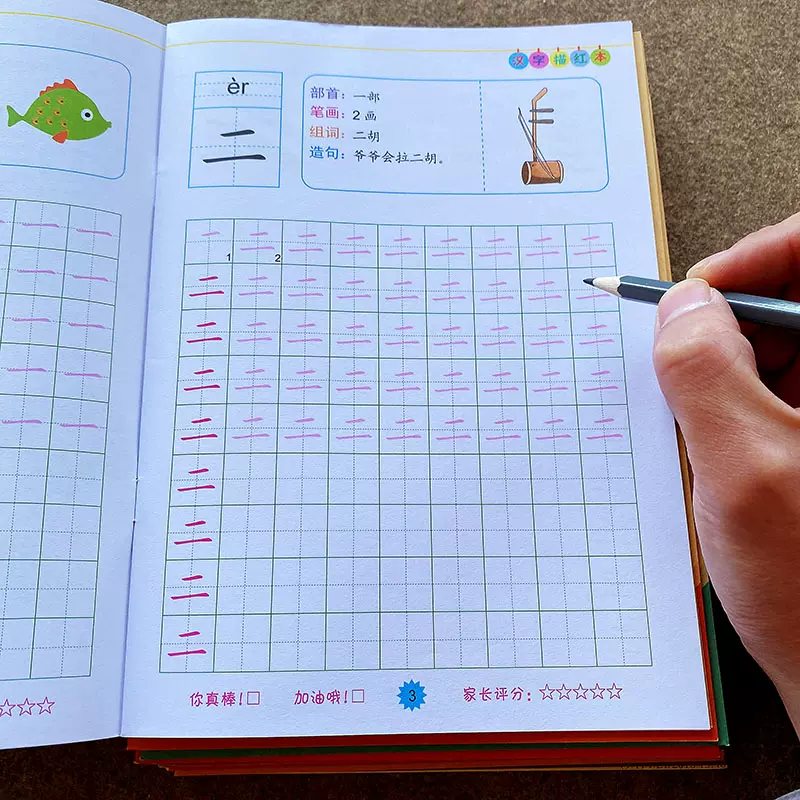 汉字描红本
èr
二
部首：一部
笔画：2 画
组词：二胡
造句：爷爷会拉二胡。
一 二 二 二 二 二 二 二 二
1 2
二 二 二 二 二 二 二 二 二
二 二 二 二 二 二 二 二 二
二 二 二 二 二 二 二 二 二
二 二 二 二 二 二 二 二 二
二
二
二
二
一 一 一
一 一
一 一
一 一
一 一
你真棒！□ 加油哦！□ 3 家长评分：☆☆☆☆☆